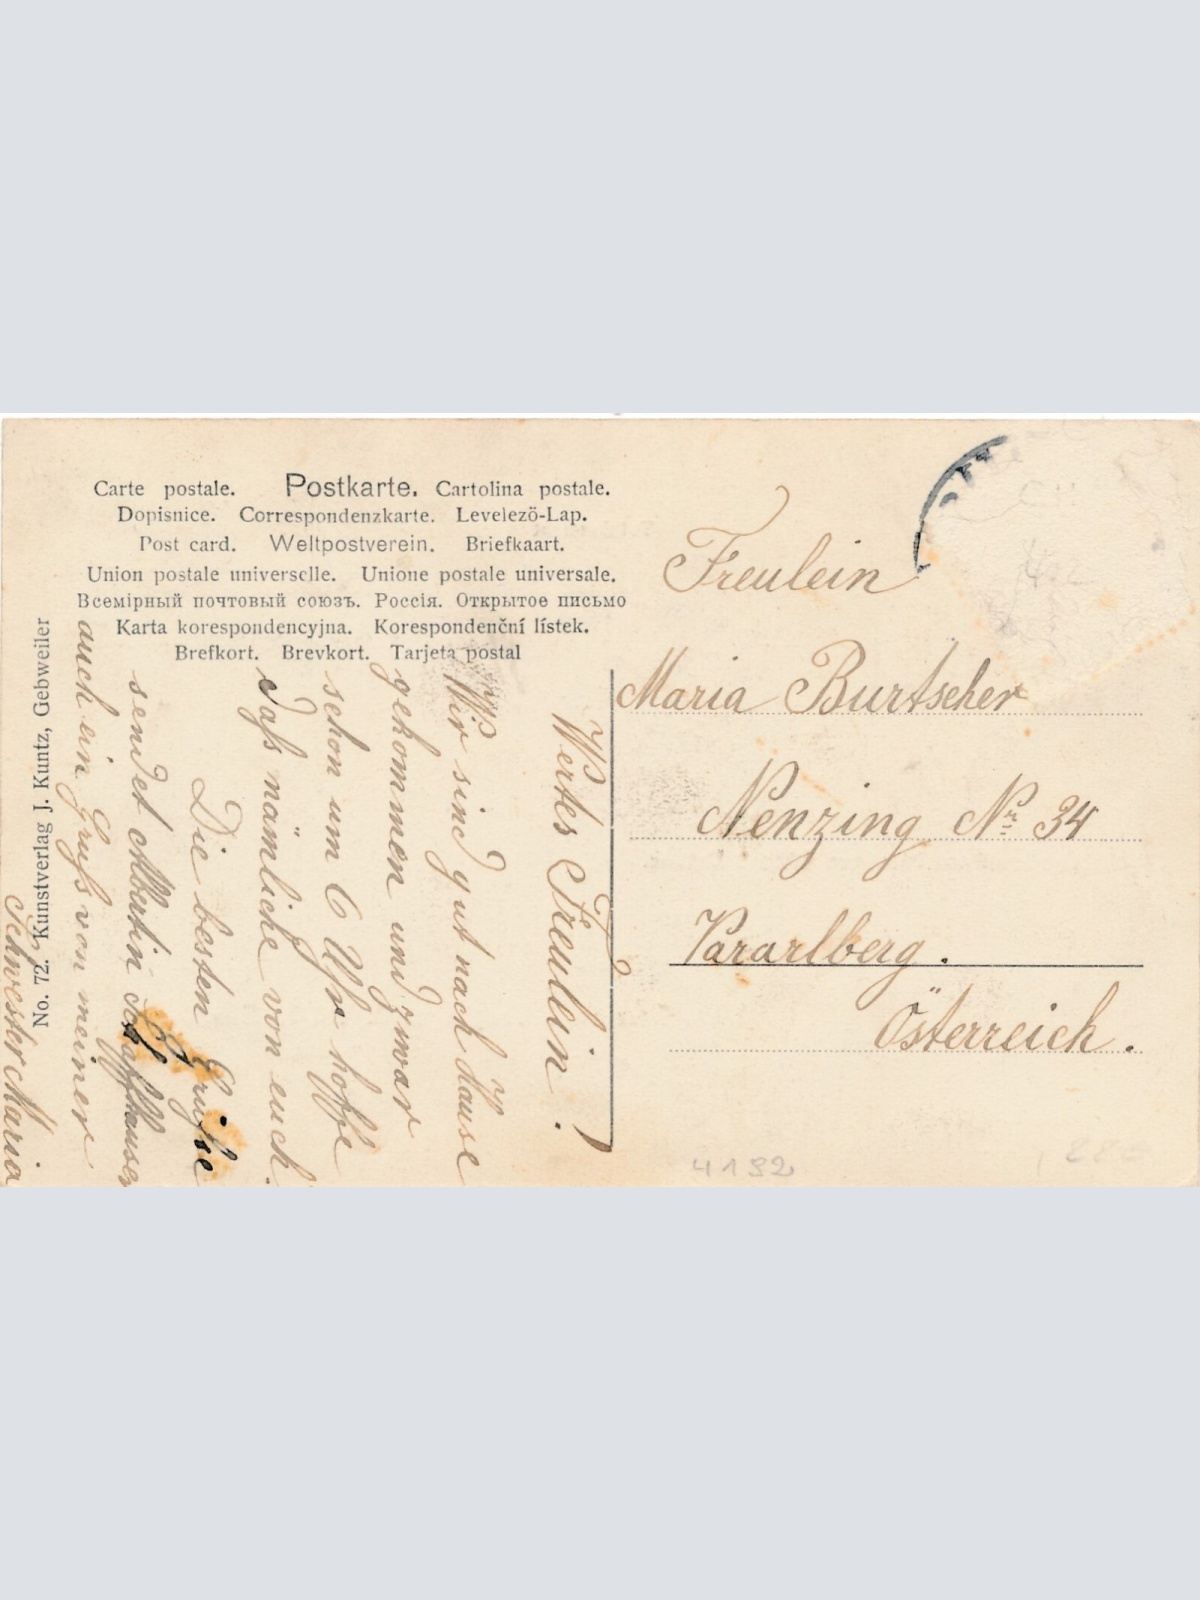 Carte postale. Postkarte. Cartolina postale.
Dopisnice. Correspondenzkarte. Levelező-Lap.
Post card. Weltpostverein. Briefkaart.
Union postale universelle. Unione postale universale.
Всемірный почтовый союзъ. Россія. Открытое письмо
Karta korespondencyjna. Korespondenční lístek.
Brefkort. Brevkort. Tarjeta postal
No. 72. Kunstverlag J. Kuntz, Gebweiler
Wertes Freulein!
Wir sind gut nach Hause
gekommen und zwar
schon um 6 Uhr hoffe
daß nämliche von euch.
Die besten Grüße
sendet Albertin Schaffhauser
auch ein Gruß von meiner
Schwester Maria
Freulein
Maria Burtscher
Nenzing Nr 34
Vararlberg.
Österreich.
4192